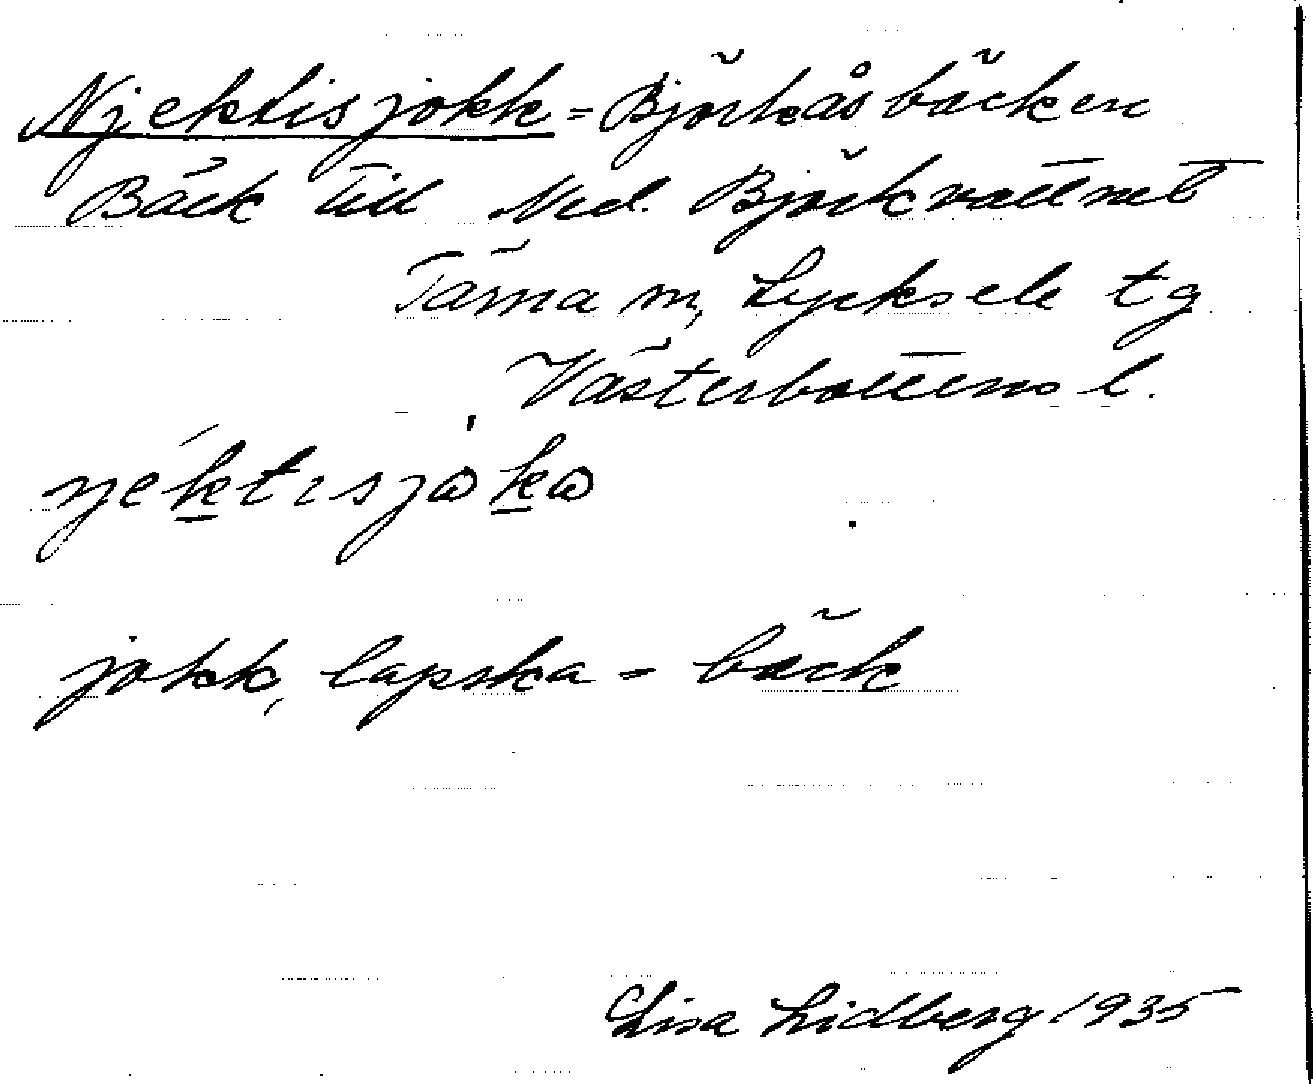 Njektisjokk = Björkåsbäcken
Bäck till Ned. Björkvattnet
Tärna sn, Lycksele tg
Västerbottens l.
jokk, lapska = bäck
Lisa Lidberg 1935